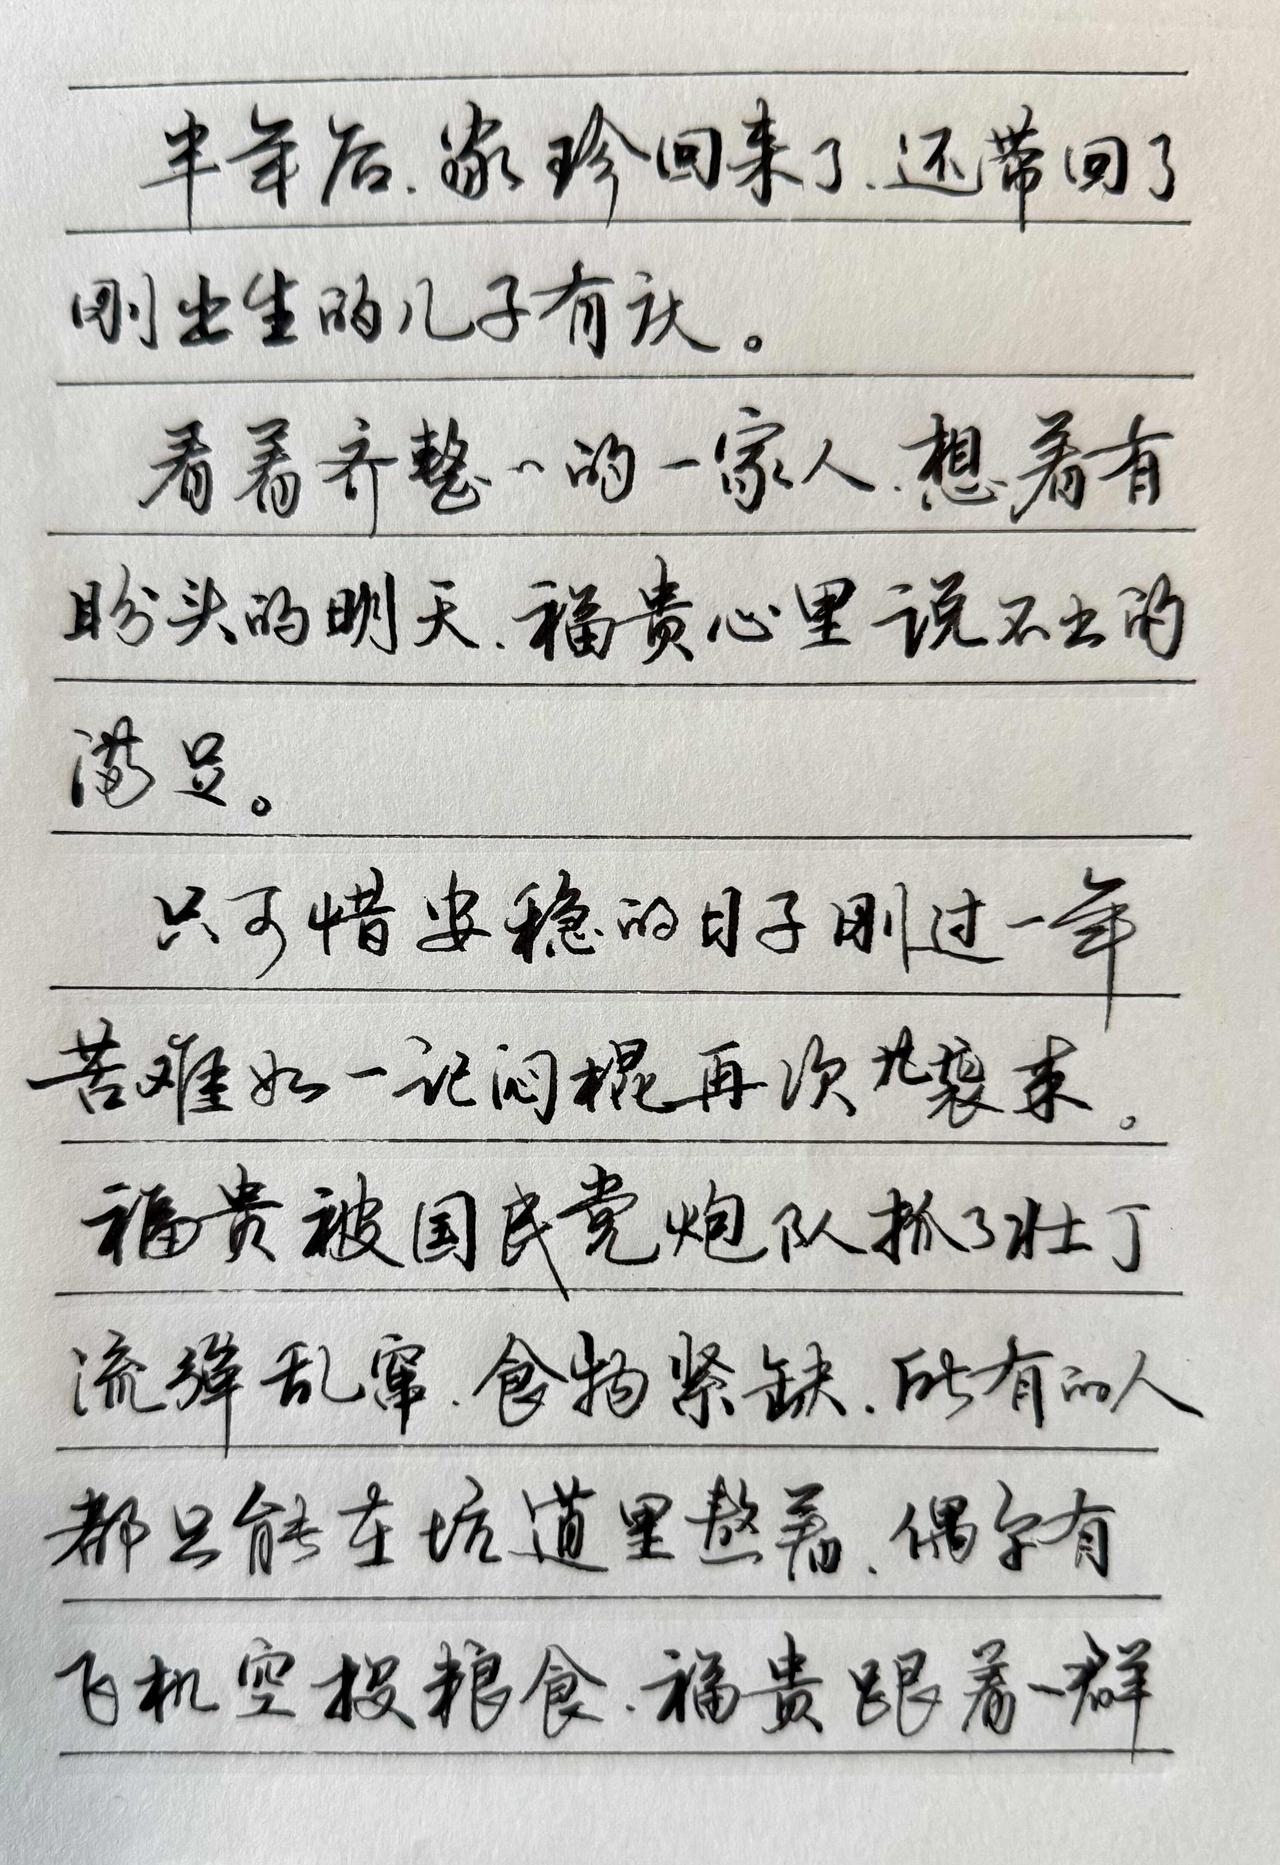 半年后、家珍回来了、还带回了
刚出生的儿子有庆。
看着齐整整的一家人、想着有
盼头的明天、福贵心里说不出的
满足。
只可惜安稳的日子刚过一年
苦难如一记闷棍再次袭来。
福贵被国民党炮队抓了壮丁
流弹乱窜、食物紧缺、所有的人
都只能在坑道里熬着、偶尔有
飞机空投粮食、福贵跟着一群